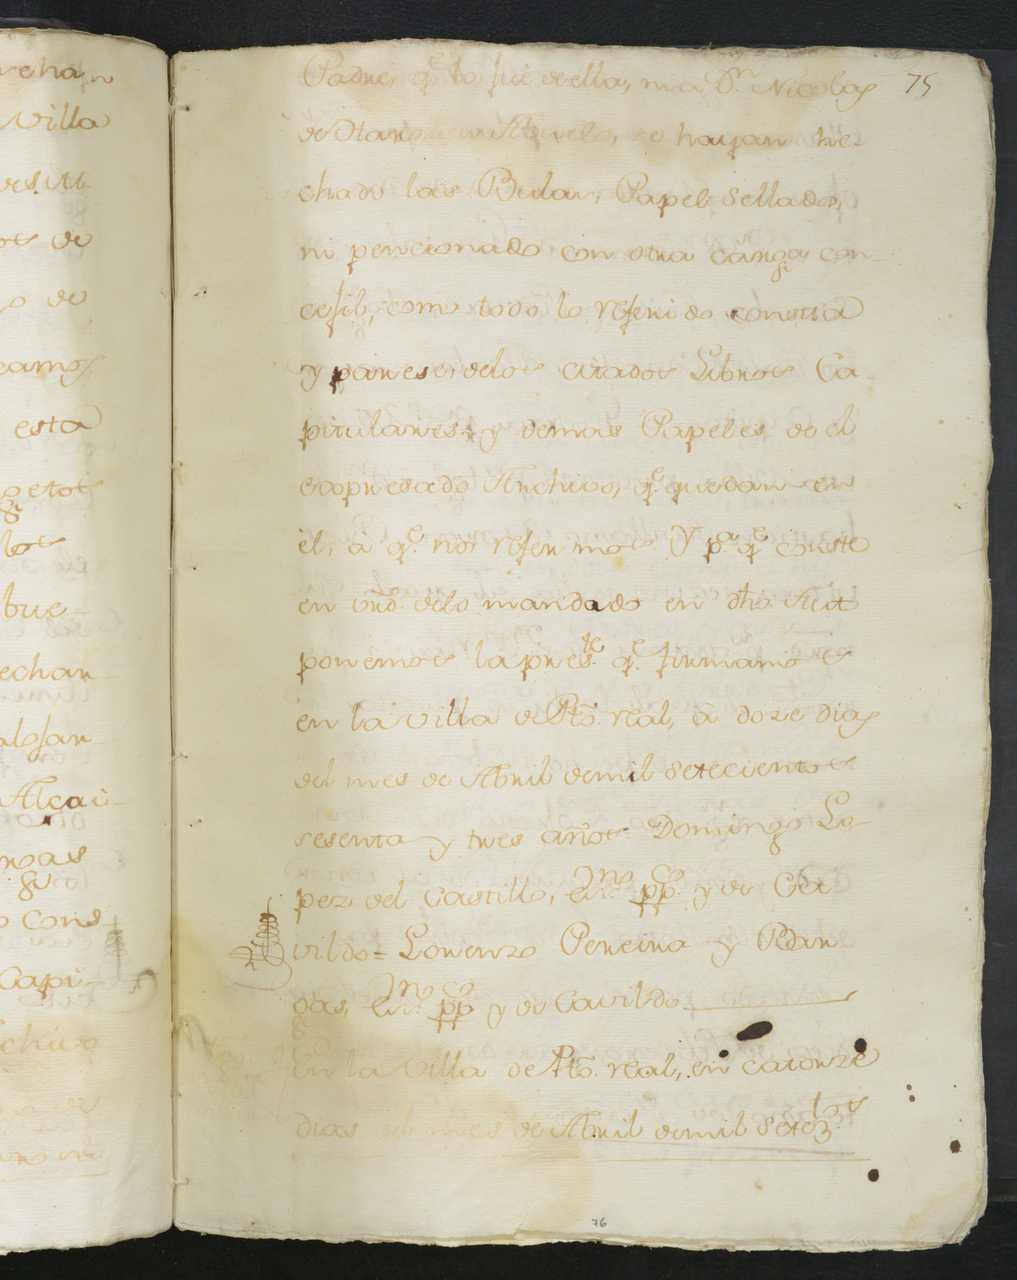 75
Padre, qᵉ lo fue de ella, ni a Dⁿ Nicolas
de se hayan he-
chado las Bulas, Papel Sellado,
ni pencionado con otra carga con-
cejil, como todo lo referido consta
y parese, delos citados Libros Ca-
pitulares, y demas Papeles de el
expresado Archivo, qᵉ quedan en
el, â qᵉ nos referimos Y pᵃ qᵉ conste
en vrᵈ delo mandado en dho. Auto
ponemos la presᵗᵉ qᵉ firmamos
en la Villa de Ptō. real, â doze dias
del mes de Abril demil setecientos
sesenta y tres años Domingo Lo-
pez del Castillo, esᶜⁿᵒ ppᶜᵒ y de Ca
vildo = Lorenzo Pereira y
esᶜⁿᵒ ppᶜᵒ y de Cavildo
En la Villa de Ptō. real, en catorze
dias del mes de Abril demil Setezᵗᵒˢ
76